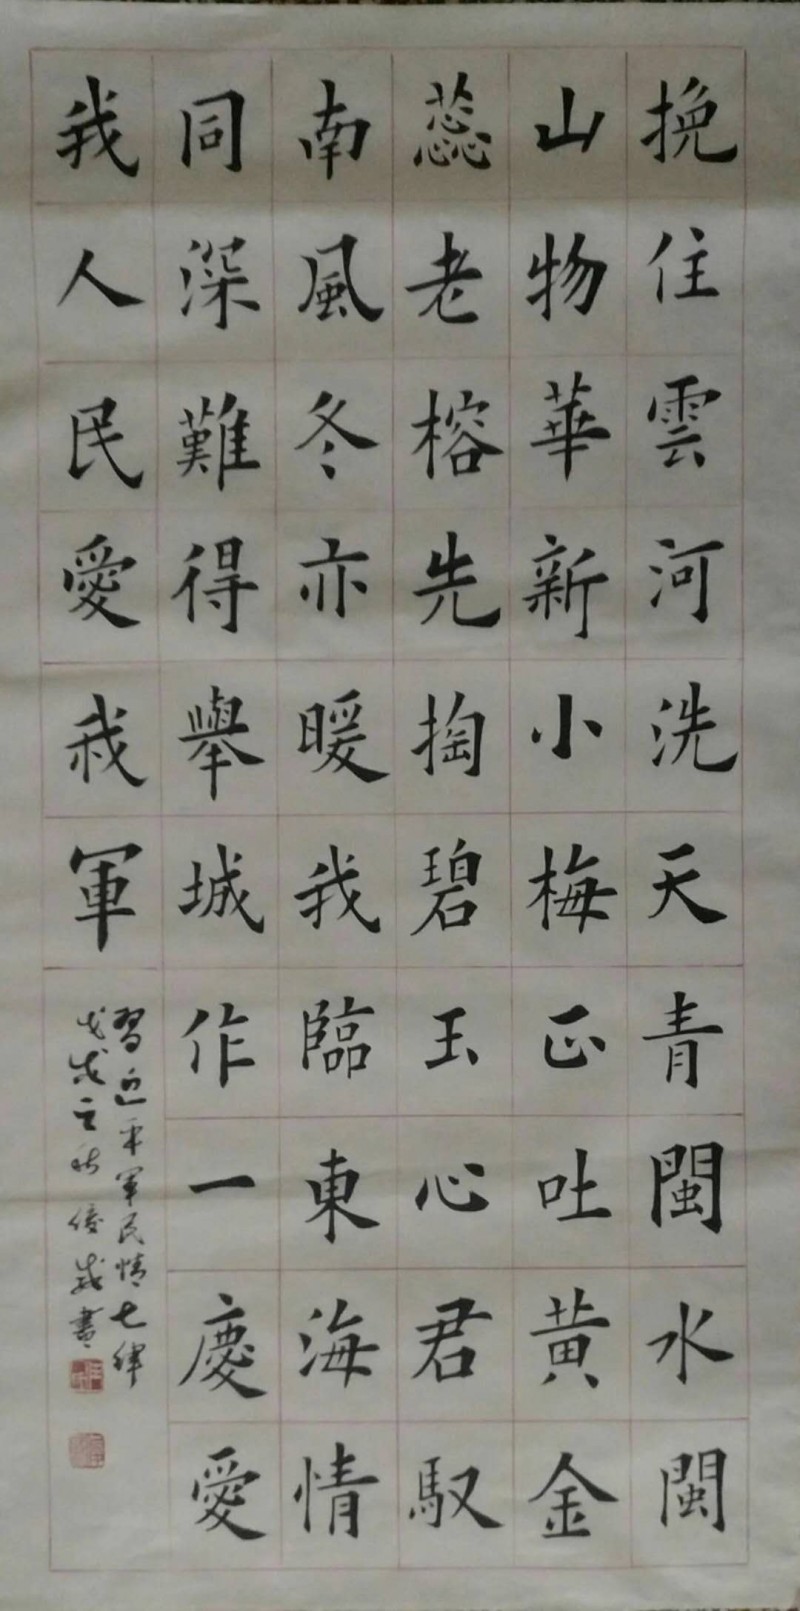 挽住雲河洗天青閩水閩
山物華新小梅正吐黃金
蕊老榕先掏碧玉心君馭
南風冬亦暖我臨東海情
同深難得舉城作一慶愛
我人民愛我軍
習近平軍民情七律
戊戌之秋俊
書